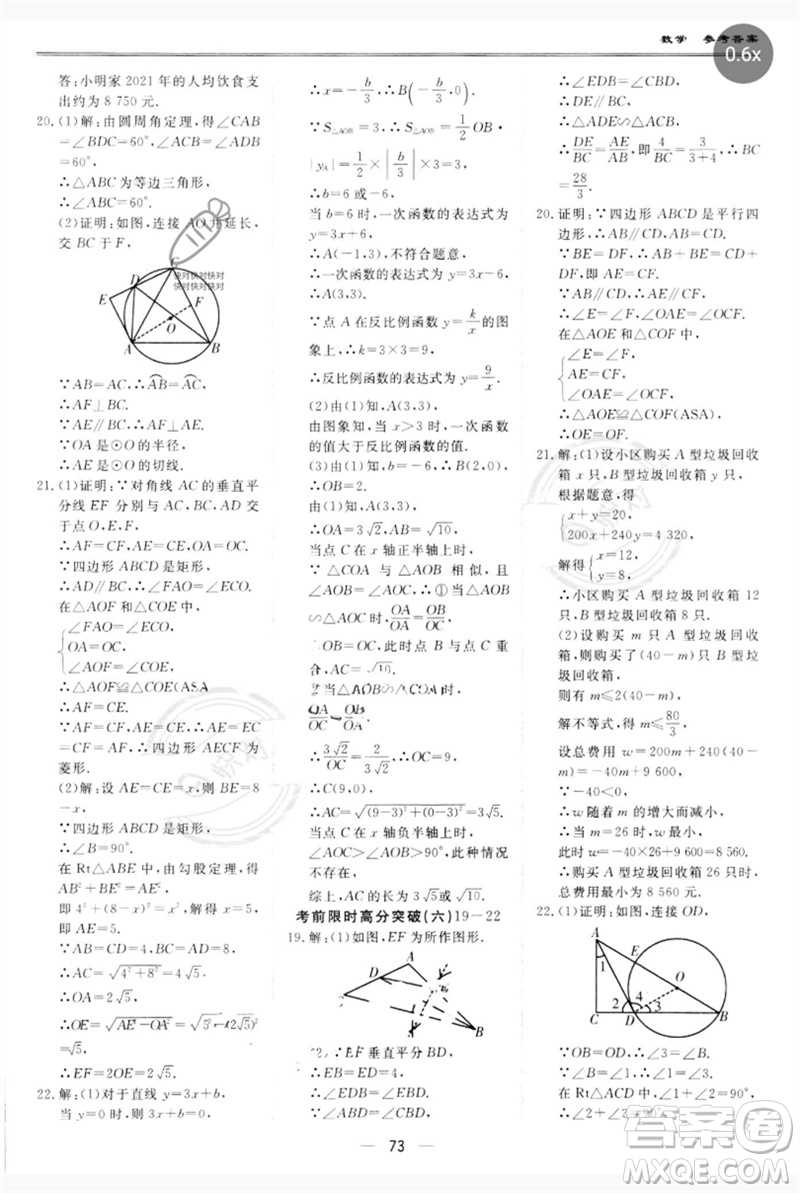 数学 参考答案
0.6x
答:小明家 2021 年的人均饮食支
出约为 8 750 元.
20.(1)解:由圆周角定理,得∠CAB
=∠BDC=60°,∠ACB=∠ADB
=60°,
∴△ABC 为等边三角形,
∴∠ABC=60°.
(2)证明:如图,连接 AO 并延长,
交 BC 于 F,
快对快对快对
快对快对快对
C
E
F
O
A
B
∵AB=AC,∴AB=AC,
∴AF⊥BC.
∵AE∥BC,∴AF⊥AE.
∵OA 是⊙O 的半径,
∴AE 是⊙O 的切线.
21.(1)证明:∵对角线 AC 的垂直平
分线 EF 分别与 AC,BC,AD 交
于点 O,E,F,
∴AF=CF,AE=CE,OA=OC.
∵四边形 ABCD 是矩形,
∴AD∥BC,∴∠FAO=∠ECO.
在△AOF 和△COE 中,
∠FAO=∠ECO,
OA=OC,
∠AOF=∠COE,
∴△AOF≌△COE(ASA),
∴AF=CE.
∵AF=CF,AE=CE,∴AE=EC
=CF=AF,∴四边形 AECF 为
菱形.
(2)解:设 AE=CE=x,则 BE=8
-x,
∵四边形 ABCD 是矩形,
∴∠B=90°.
在 Rt△ABE 中,由勾股定理,得
AB²+BE²=AE²,
即 4²+(8-x)²=x²,解得 x=5,
即 AE=5.
∵AB=CD=4,BC=AD=8,
∴AC=√(4²+8²)=4√5,
∴OA=2√5,
∴OE=√(AE²-OA²)=√(5²-(2√5)²)
=√5,
∴EF=2OE=2√5.
22.解:(1)对于直线 y=3x+b,
当 x=0 时,y=b,当 y=0 时,3x+b=0,
∴x=-b/3,∴B(-b/3,0).
∵S△AOB=3,∴S△AOB=1/2 OB·
|yA|=1/2×|b/3|×3=3,
∴b=6 或-6.
当 b=6 时,一次函数的表达式为
y=3x+6,
∴A(-1,3),不符合题意,
∴一次函数的表达式为 y=3x-6,
∴A(3,3).
∵点 A 在反比例函数 y=k/x 的图
象上,∴k=3×3=9,
∴反比例函数的表达式为 y=9/x.
(2)由(1)知,A(3,3),
由图象知,当 x>3 时,一次函数
的值大于反比例函数的值.
∴OB=2.
由(1)知,A(3,3),
∴OA=3√2,AB=√10,
当点 C 在 x 轴正半轴上时,
∵△COA 与△AOB 相似,且
∠AOB=∠AOC,∴①△AOB
∽△AOC 时,OA/OA=OB/OC,
∴OB=OC,此时点 B,C 重
合,AC=√10.
当△AOB∽△COA 时,
OA/OC=OB/OA,
∴3√2/OC=2/3√2,∴OC=9,
∴C(9,0),
∴AC=√((9-3)²+(0-3)²)=3√5.
当点 C 在 x 轴负半轴上时,
∠AOC>∠AOB,此种情况
不存在,
综上,AC 的长为 3√5或√10.
考前限时高分突破(六)19-22
19.解:(1)如图,EF 为所作图形.
A
D
B
EF 垂直平分 BD,
∴EB=ED,
∴∠EDB=∠EBD.
∴∠EDB=∠EBC,
∴DE∥BC,
∴△ADE∽△ACB,
∴DE/BC=AE/AB,即 4/BC=3/(3+4),∴BC=
28/3.
20.证明:∵四边形 ABCD 是平行四
边形,∴AB∥CD,AB=CD.
∵BE=DF,
∴AB+BE=CD+DF,即 AE=CF.
∵AB∥CD,∴AE∥CF,
∴∠E=∠F,∠OAE=∠OCF.
在△AOE 和△COF 中,
∠E=∠F,
AE=CF,
∠OAE=∠OCF,
∴△AOE≌△COF(ASA),
∴OE=OF.
21.解:(1)设小区购买 A 型垃圾回收
箱 x 只,购买 B 型垃圾回收箱 y 只,
根据题意,得
x+y=20,
200x+240y=4 320,
解得 x=12,
y=8,
∴小区购买 A 型垃圾回收箱 12
只,购买 B 型垃圾回收箱 8 只.
(2)设购买 m 只 A 型垃圾回收
箱,则购买了(40-m)只 B 型垃
圾回收箱,
则有 m≤2(40-m),
解不等式,得 m≤80/3,
设总费用 w=200m+240(40-m)
=-40m+9 600,
∵-40<0,
∴w 随着 m 的增大而减小,
∴当 m=26 时,w 最小,
此时 w=-40×26+9 600=8 560.
答:购买 A 型垃圾回收箱 26 只,
总费用最小为 8 560 元.
22.(1)证明:如图,连接 OD,
A
E
1
O
2
4
3
C
D
B
∵OB=OD,∴∠3=∠B.
∵∠B=∠1,∴∠1=∠3.
在 Rt△ACD 中,∠1+∠2=90°,
∴∠2+∠3=90°,
73
答案圈
MXQE.COM